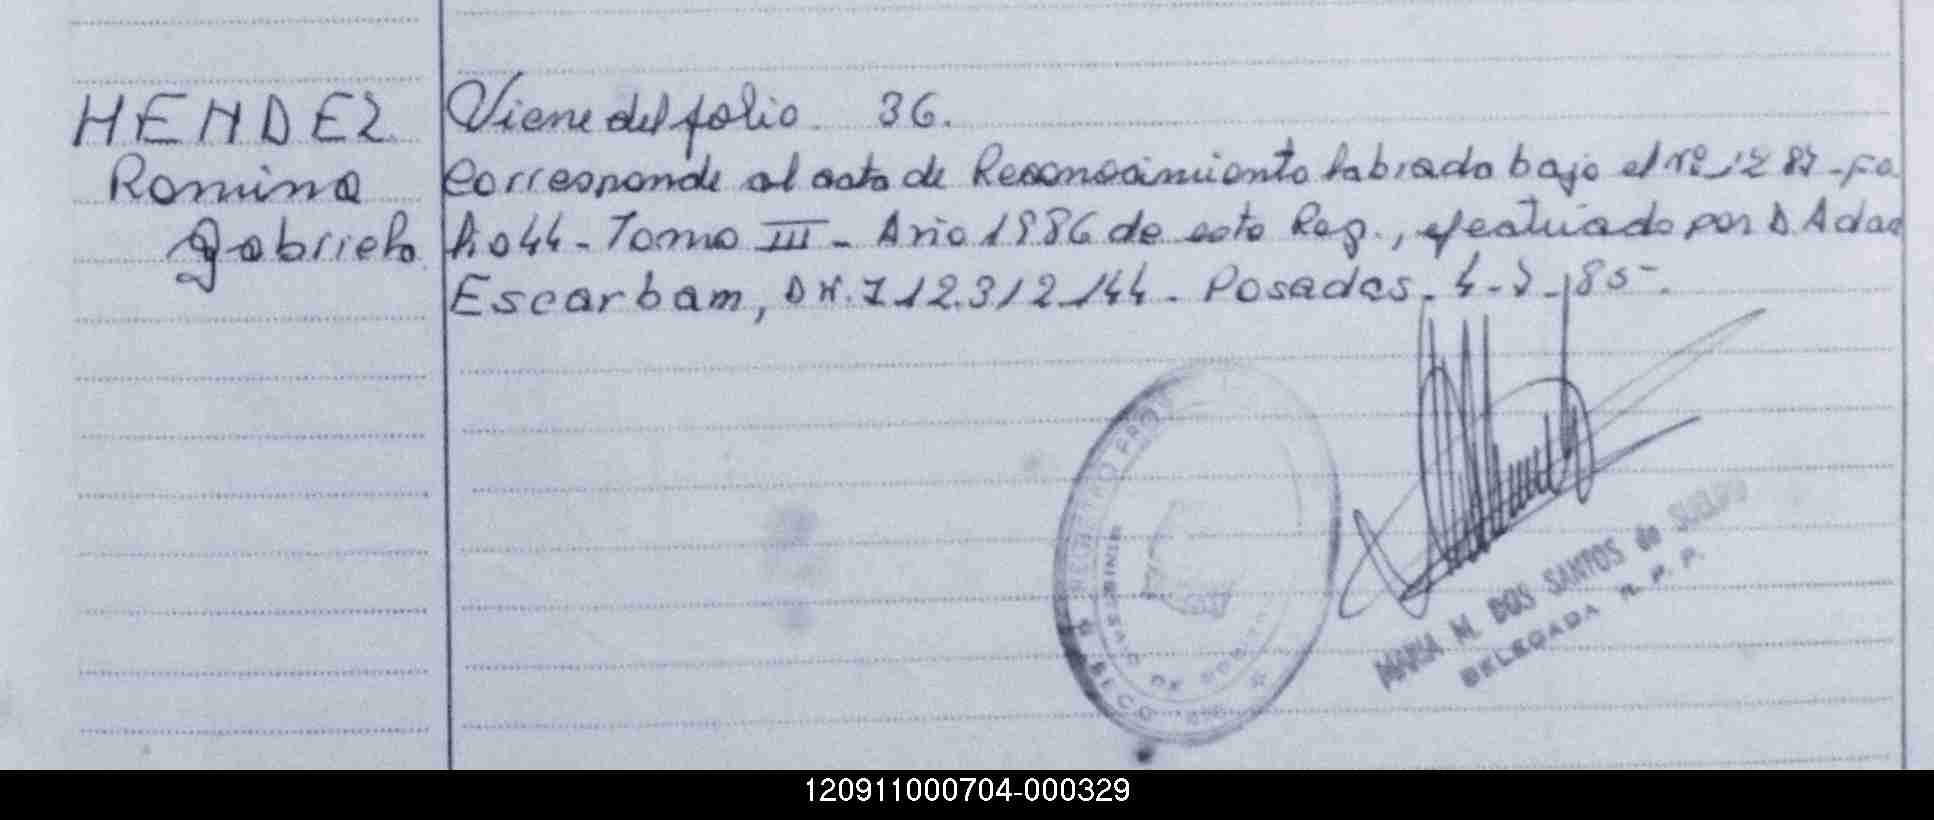 HENDEZ
Romina
Gabriela
Viene del folio 36.
Corresponde al acta de Reconocimiento labrado bajo el nº 1287 - Fo
lio 44 - Tomo III - Año 1986 de este Reg., efectuado por D. Adao
Escarbam, DN. I 12.312.144 - Posadas. 4-5-85-.
REGISTRO PROV
MINISTERIO DE GOBIERNO
MARIA M. DOS SANTOS de SUELDO
DELEGADA R. P. P.
120911000704-000329